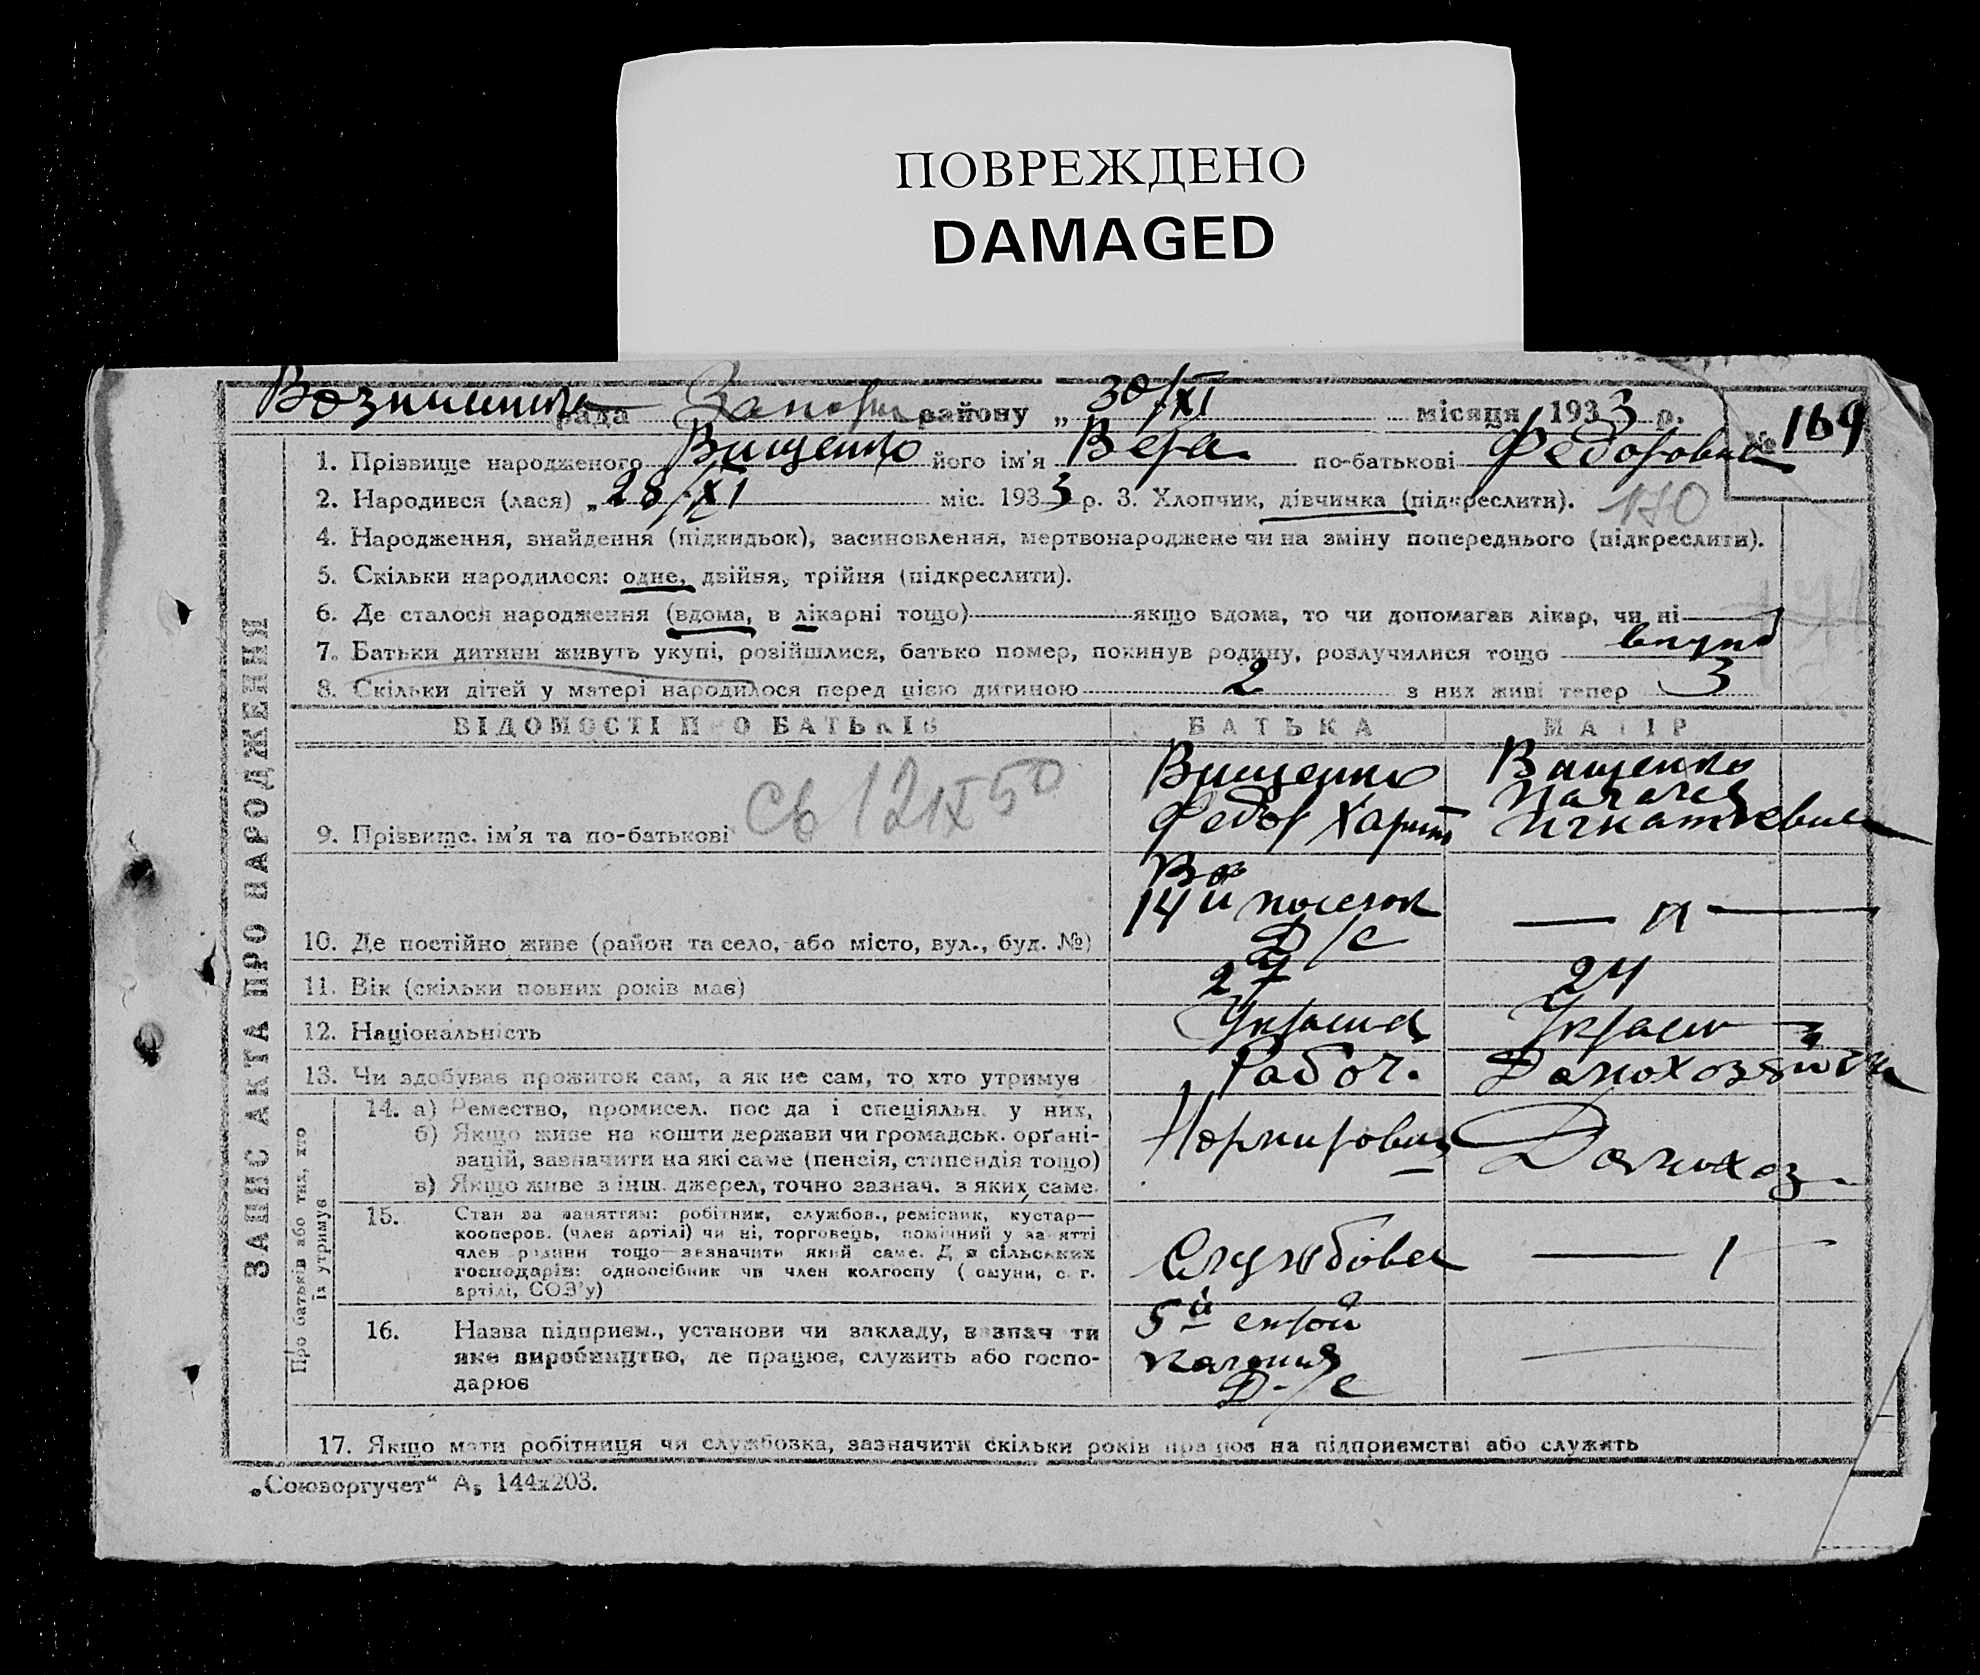 ПОВРЕЖДЕНО
DAMAGED
рада району „ 30/XI місяця 1933 р.
№ 169
1. Прізвище народженого Вищенко його ім'я Вера по-батькові Федоровна
2. Народився (лася) „ 28/XI міс. 1933 р. 3. Хлопчик, дівчинка (підкреслити).
170
4. Народження, знайдення (підкидьок), засиновлення, мертвонароджене чи на зміну попереднього (підкреслити).
5. Скільки народилося: одне, двійня, трійня (підкреслити).
6. Де сталося народження (вдома, в лікарні тощо) якщо вдома, то чи допомагав лікар, чи ні
7. Батьки дитини живуть укупі, розійшлися, батько помер, покинув родину, розлучилися тощо
8. Скільки дітей у матері народилося перед цією дитиною 2 з них живі тепер 3
ЗАПИС АКТА ПРО НАРОДЖЕННЯ
ВІДОМОСТІ ПРО БАТЬКІВ БАТЬКА МАТІР
9. Прізвище, ім'я та по-батькові
Св 12 IX 50
Вищенко
Федор Харит
Вищенко
Игнатьевна
10. Де постійно живе (район та село, або місто, вул., буд. №)
14й поселок
Д/С
— п —
11. Вік (скільки повних років має) 27 24
12. Національність
13. Чи здобував прожиток сам, а як не сам, то хто утримує Рабоч. Домохозяйка
Про батьків або тих, хто їх утримує
14. а) Ремество, промисел. пос да і спеціяльн. у них,
б) Якщо живе на кошти держави чи громадськ. орґані-
зацій, зазначити на які саме (пенсія, стипендія тощо)
в) Якщо живе з інш. джерел, точно зазнач. з яких саме.
Домохоз.
15. Стан за заняттям: робітник, службов., ремісник, кустар—
кооперов. (член артілі) чи ні, торговець, помічний у за ятті
член родини тощо—зазначити який саме. Д я сільських
господарів: одноосібник чи член колгоспу ( омуни, с. г.
артілі, СОЗ'у)
Службовец
16. Назва підприєм., установи чи закладу, зазнач ти
яке виробництво, де працює, служить або госпо-
дарює
5й
Д/С
17. Якщо мати робітниця чи службовка, зазначити скільки років працює на підприємстві або служить
„Союзоргучет“ А5 144х203.